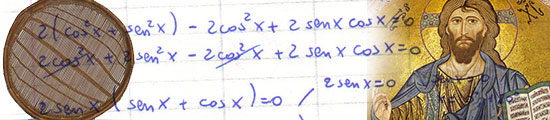 2(cos²x + sen²x) - 2cos²x + 2 sen x cos x = 0
2cos²x + 2 sen²x - 2cos²x + 2 sen x cos x = 0
2 sen x (sen x + cos x) = 0 / 2 sen x = 0